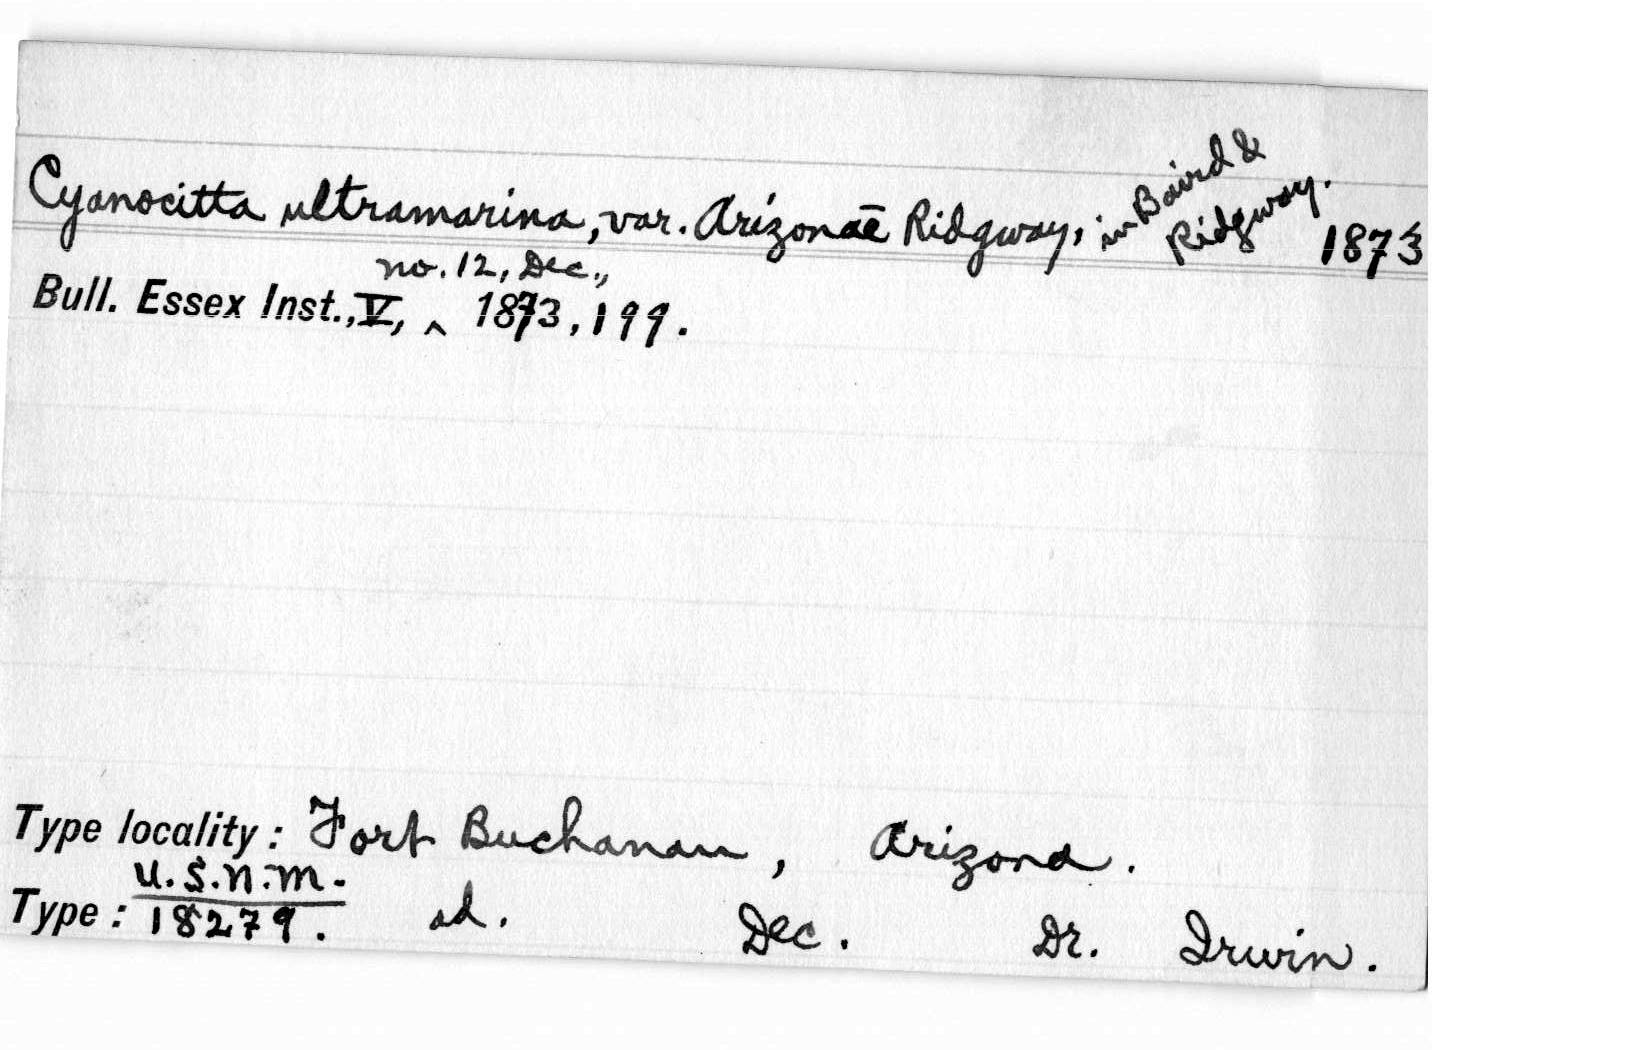 Cyanocitta ultramarina, var. Arizonae Ridgway, in Baird & Ridgway. 1873
Bull. Essex Inst., V, no. 12, Dec., 1873, 199.
Type locality: Fort Buchanan, Arizona.
U.S.N.M.
Type: 18279. ad. Dec. Dr. Irwin.